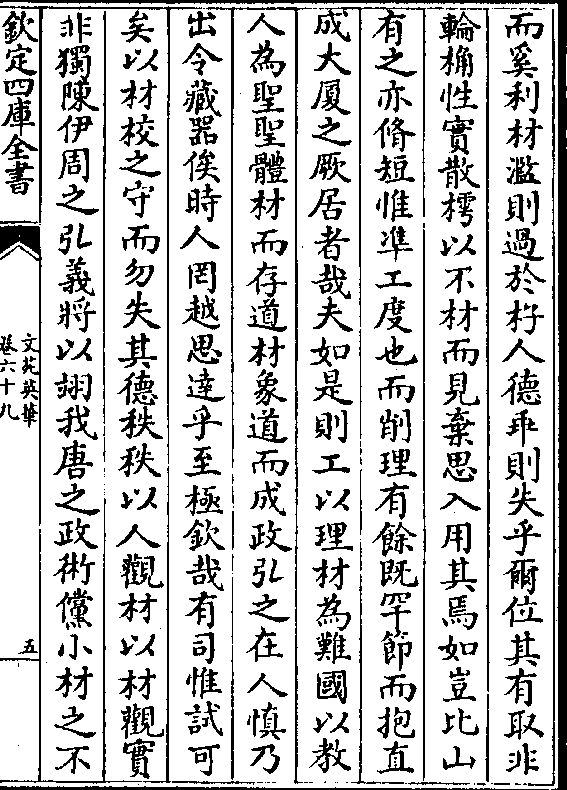 而奚利材濫則過於杍人德乖則失乎爾位其有取非
輪桷性實散樗以不材而見棄思入用其焉如豈比山
有之亦脩短惟準工度也而削理有餘既罕節而抱直
成大厦之厥居者哉夫如是則工以理材為難國以教
人為聖聖體材而存道材象道而成政弘之在人慎乃
出令藏器俟時人罔越思達乎至極欽哉有司惟試可
矣以材校之守而勿失其德秩秩以人觀材以材觀實
非獨陳伊周之弘義將以翊我唐之政術儻小材之不
欽定四庫全書
文苑英華
卷六十九
五